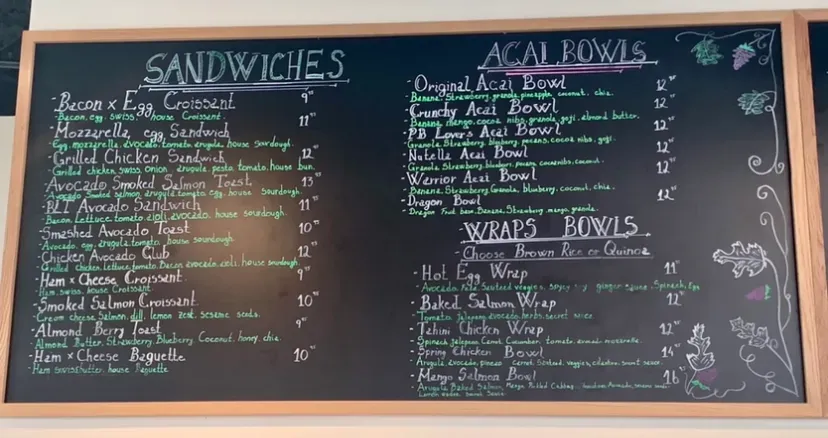 SANDWICHES
- Bacon x Egg Croissant 9
- Bacon, egg, swiss, house Croissant.
- Mozzarella, egg, Sandwich 11
- Egg, mozzarella, avocado, tomato, arugula, house sourdough.
- Grilled Chicken Sandwich 12
- Grilled chicken, swiss, onion, arugula, pesto, tomato, house bun.
- Avocado Smoked Salmon Toast 13
- Avocado, Smoked salmon, arugula, tomato, egg, house sourdough.
- BLT Avocado Sandwich 11
- Bacon, Lettuce, tomato, aioli, avocado, house sourdough.
- Smashed Avocado Toast 10
- Avocado, egg, arugula, tomato, house sourdough.
- Chicken Avocado Club 12
- Grilled chicken, Lettuce, tomato, Bacon, avocado, house sourdough.
- Ham x Cheese Croissant 9
- Ham, swiss, house Croissant.
- Smoked Salmon Croissant 10
- Cream cheese, Salmon, dill, lemon zest, sesame seeds.
- Almond Berry Toast 9
- Almond Butter, Strawberry, Blueberry, Coconut, honey, chia.
- Ham x Cheese Baguette 10
- Ham, swiss, butter, house Baguette
ACAI BOWLS
- Original Acai Bowl 12
- Banana, Strawberry, granola, pineapple, coconut, chia.
- Crunchy Acai Bowl 12
- Banana, mango, cocoa nibs, granola, goji, almond butter.
- PB Lovers Acai Bowl 12
- Granola, Strawberry, bluberry, pecans, cocoa nibs, goji.
- Nutella Acai Bowl 12
- Granola, Strawberry, bluberry, pecans, cocoa nibs, coconut.
- Warrior Acai Bowl 12
- Banana, Strawberry, Granola, blueberry, coconut, chia.
- Dragon Bowl 12
- Dragon Fruit base, Banana, Strawberry, mango, granola.
WRAPS BOWLS
- Choose Brown Rice or Quinoa
- Hot Egg Wrap 11
- Avocado, veggies, spicy ginger Spinach, Egg
- Baked Salmon Wrap 12
- Tomato, Jalapeno, avocado, herbs, secret
- Tahini Chicken Wrap 12
- Spinach, Jalapeno, Carrot, Cucumber, tomato, mozzarella.
- Spring Chicken Bowl 14
- Arugula, avocado, Carrot, veggies, cilantro, sauce.
- Mango Salmon Bowl 16
- Arugula, Baked Salmon, Mango, Pickled Cabbage, Avocado,
Sauce